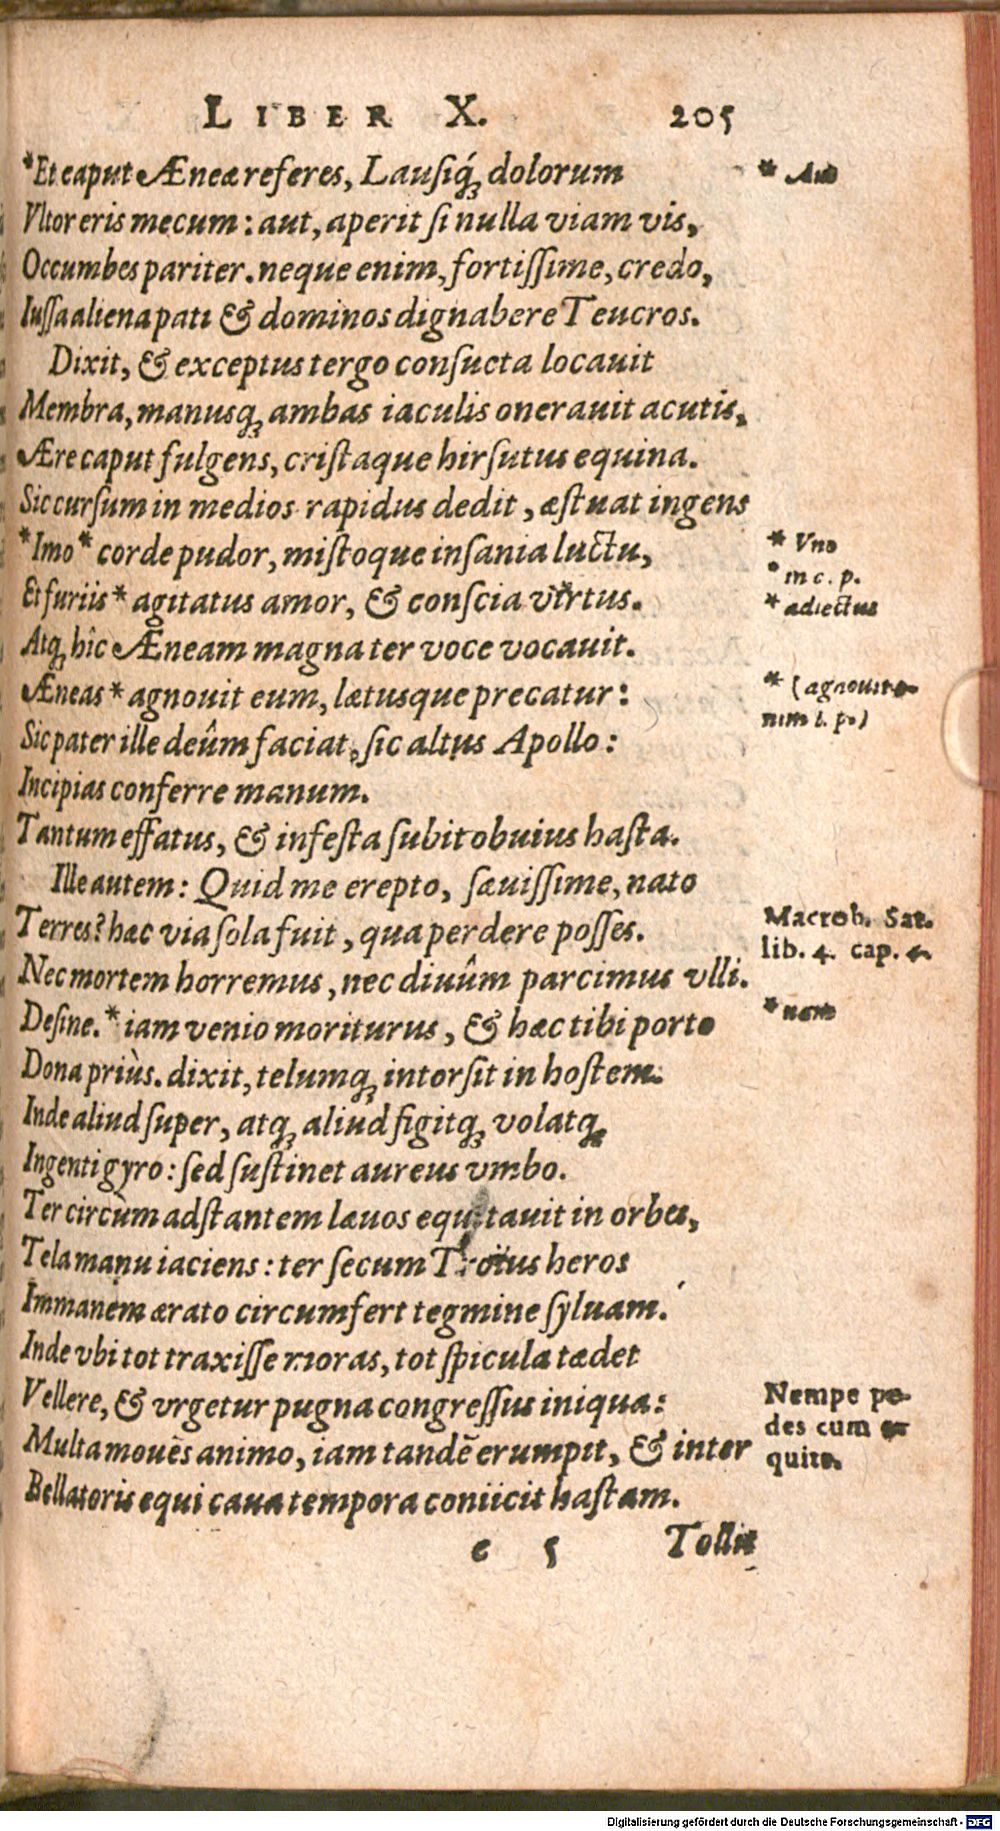 LIBER X. 205
*Et caput Æneæ referes, Lausiq́ꝫ dolorum
Vltor eris mecum: aut, aperit si nulla viam vis,
Occumbes pariter. neque enim, fortissime, credo,
Iussa aliena pati & dominos dignabere Teucros.
Dixit, & exceptus tergo consueta locauit
Membra, manusqꝫ ambas iaculis onerauit acutis,
Ære caput fulgens, cristaque hirsutus equina.
Sic cursum in medios rapidus dedit, æstuat ingens
*Imo* corde pudor, mistoque insania luctu,
Et furiis* agitatus amor, & conscia virtus.
Atqꝫ hîc Æneam magna ter voce vocauit.
Æneas* agnouit eum, lætusque precatur:
Sic pater ille deûm faciat, sic altus Apollo:
Incipias conferre manum.
Tantum effatus, & infesta subit obuius hasta.
Ille autem: Quid me erepto, sæuissime, nato
Terres? hæc via sola fuit, qua perdere posses.
Nec mortem horremus, nec diuûm parcimus vlli.
Desine. *iam venio moriturus, & hæc tibi porto
Dona priùs. dixit, telumqꝫ intorsit in hostem.
Inde aliud super, atqꝫ aliud figitqꝫ volatqꝫ
Ingenti gyro: sed sustinet aureus vmbo.
Ter circùm adstantem læuos equitauit in orbes,
Tela manu iaciens: ter secum Troius heros
Immanem ærato circumfert tegmine syluam.
Inde vbi tot traxisse moras, tot spicula tædet
Vellere, & vrgetur pugna congressus iniqua:
Multa mouẽs animo, iam tandẽ erumpit, & inter
Bellatoris equi caua tempora coniicit hastam.
e 5 Tollit
*
* Vno
* in c. p.
* adiectus
* (agnouit e-
nim l. p.)
Macrob. Sat.
lib. 4. cap. 4.
* nam
Nempe pe-
des cum e-
quite.
Digitalisierung gefördert durch die Deutsche Forschungsgemeinschaft - DFG